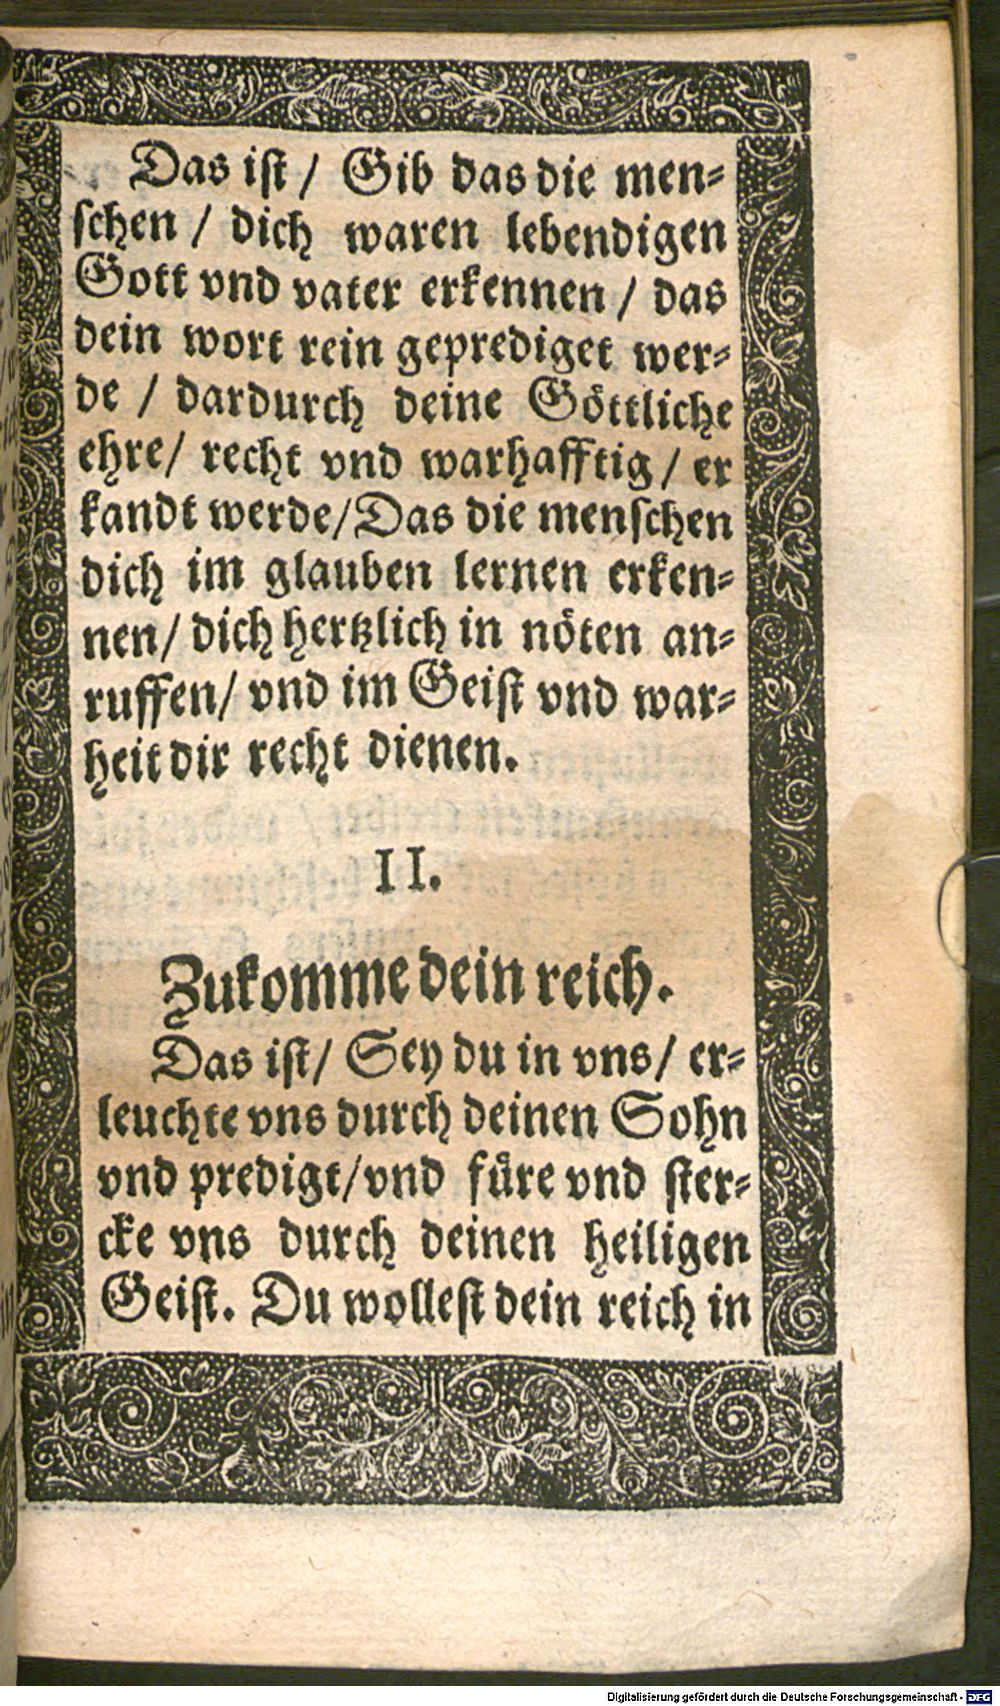 Das ist / Gib das die men⸗
schen / dich waren lebendigen
Gott vnd vater erkennen / das
dein wort rein geprediget wer⸗
de / dardurch deine Göttliche
ehre / recht vnd warhafftig / er
kandt werde / Das die menschen
dich im glauben lernen erken⸗
nen / dich hertzlich in nöten an⸗
ruffen / vnd im Geist vnd war⸗
heit dir recht dienen.
II.
Zukomme dein reich.
Das ist / Sey du in vns / er⸗
leuchte vns durch deinen Sohn
vnd predigt / vnd füre vnd ster⸗
cke vns durch deinen heiligen
Geist. Du wollest dein reich in
Digitalisierung gefördert durch die Deutsche Forschungsgemeinschaft - DFG